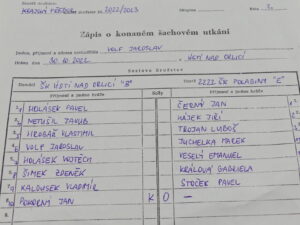 KRAJSKÝ PŘEBOR 2022/2023 Kolo 3.
Zápis o konaném šachovém utkání
Jméno, příjmení a adresa rozhodčího VOLF JAROSLAV
Hráno dne 30.10.2022 v ÚSTÍ NAD ORLICÍ
Sestava družstev
Domácí ŠK ÚSTÍ NAD ORLICÍ "B" Hosté ŠK POLABINY "E"
Příjmení a jméno hráče Body Příjmení a jméno hráče
1. HOLÁSEK PAVEL ČERNÝ JAN
2. METUŠIL JAKUB HÁJEK JIŘÍ
3. HROBAŘ VLASTIMIL TROJAN LUBOŠ
4. VOLF JAROSLAV JUCHELKA MAREK
5. HOLÁSEK VOJTĚCH VESELÝ EMANUEL
6. ŠIMEK ZDENĚK KRÁLOVÁ GABRIELA
7. KALOUSEK VLADIMÍR ŠTOČEK PAVEL
8. POKORNÝ JAN K 0 —
9.